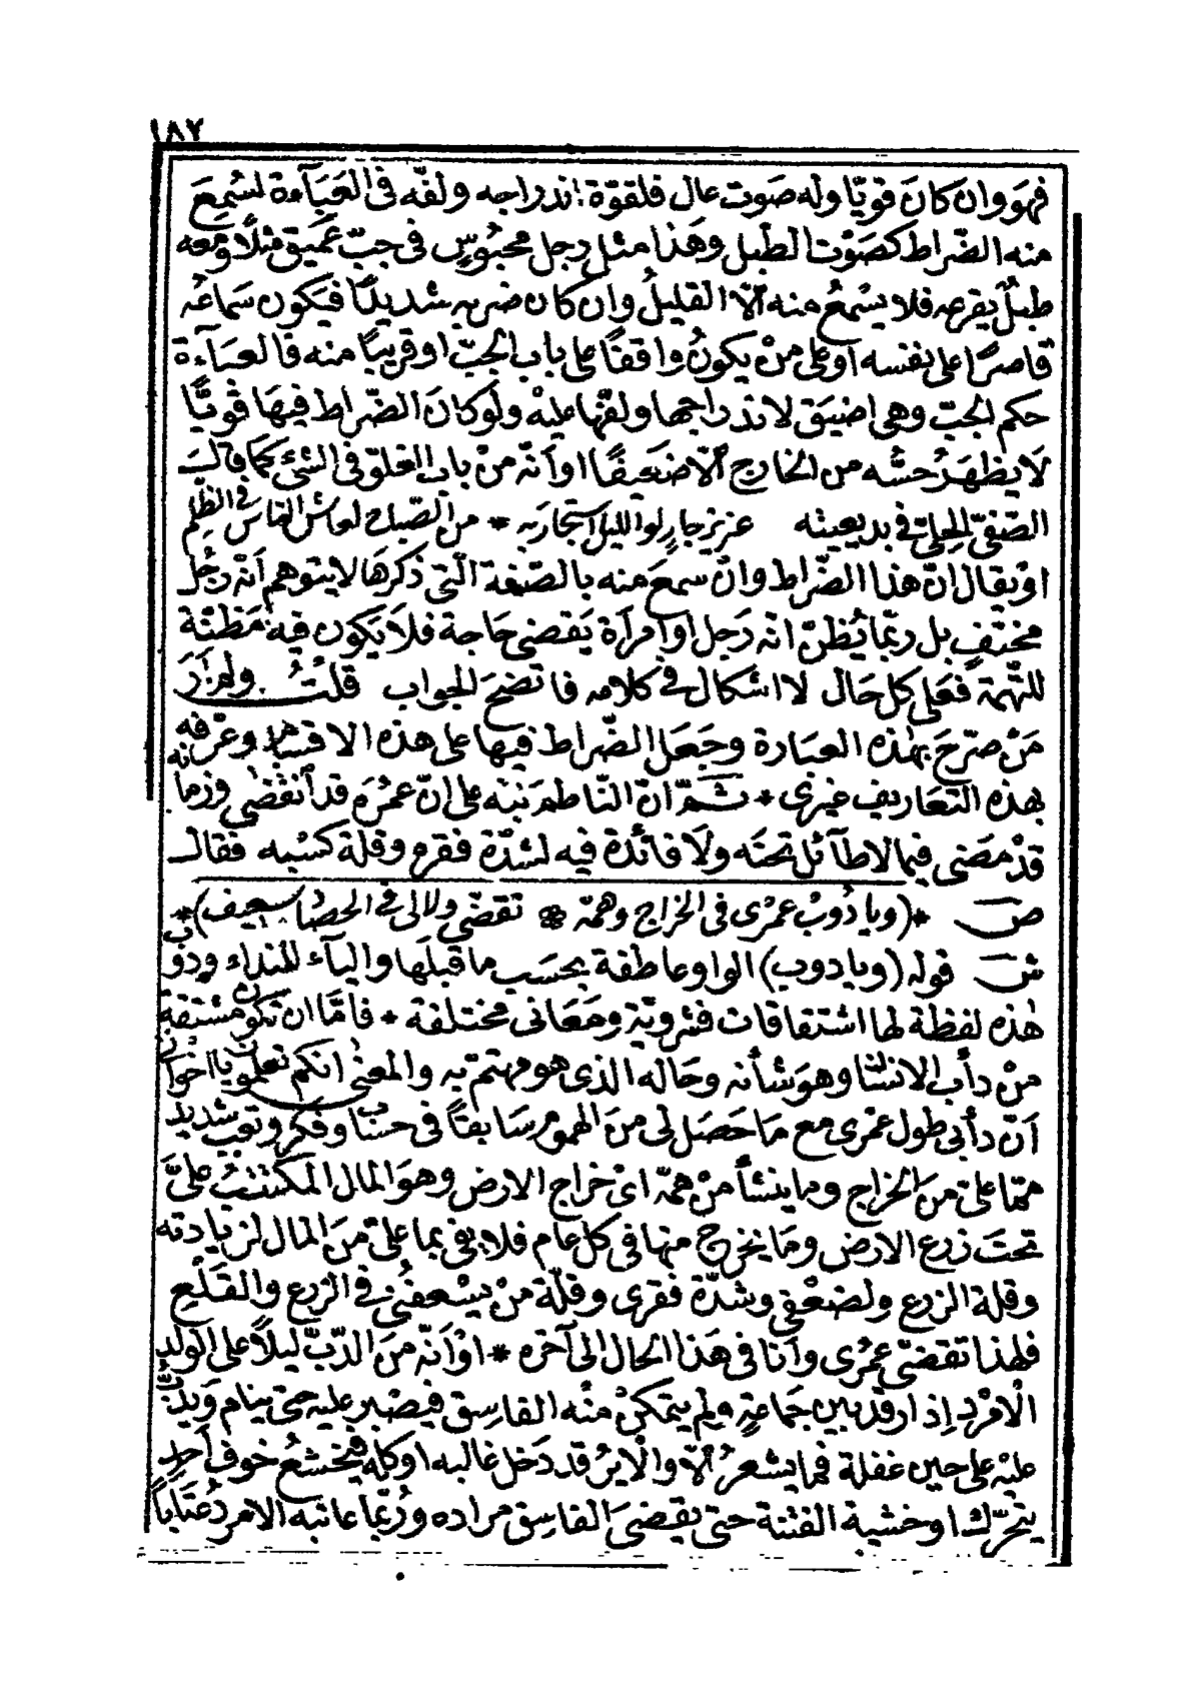 ١٨٧
فهَو وان كانَ قويّا وله صَوت عال فلقوّة اندراجه ولفّه فى العَبَآءة لسُمِعَ
منه الضّراط كصَوْت الطبل وهَذا مثل رجل محبُوسٍ فى جبّ عميق مثلًا ومعه
طبلٌ يقرعه فلا يسْمعُ منه الّا القليلُ وان كان ضربه شديدًا فيَكون سَماعُه
قاصرًا على نفسه او على منْ يكونُ واقفًا على باب الجبّ او قريبًا منه فالعبَآءة
حكم الجبّ وهى اضيَق لاندراجها ولفّها عليْه ولو كانَ الضّراط فيهَا قويًّا
لَا يظهَرُ حسُّه من الخارج الّا ضَعيفًا او انّه منْ باب الغلوّ فى الشئ كمَا قالَ
الصّفىّ الحلىّ فى بديعيته عزيز جارٍ لو الليل استجاربه * من الصّباح لعاش الناس فى الظلم
او يقال انّ هذا الضّراط وانْ سمعَ منه بالصّفة الّتى ذكرهَا لا يتوهم انّه رجُل
مختفٍ بل ربّما يُظنّ انّه رَجل او امرَأة يَقضى حَاجة فلَا يَكون فيه مَظنّة
للتّهمة فعَلى كل حَال لا اشكال فى كلامه فاتضحَ الجواب قلتُ ولم أرَ
مَنْ صرّحَ بهٰذه العبَارة وجَعَل الضّراط فيهَا على هذه الاقسام وعرّفه
بهذه التّعَاريف غيرى * ثمّ انّ النّاظم نبّه على انّ عمُرَه قد انقضٰى وزمانه
قدْ مضَى فيما لا طآئل تحتَه ولَا فائدة فيه لشدّة فقره وقلة كسْبه فقالـ
صـ *(ويا دُوبْ عمْرى فى الخراج وهمّه * تقضّى ولا لى فى الحصاد سعيف)*
شـ قوله (ويا دوب) الواو عاطفة بحسَب ما قبلَها واليآء للنداء ودوب
هٰذه لفظة لها اشتقاقات فشرويّة ومَعَانى مختلفة * فامّا ان تكون مشتقة
منْ دأب الانسان وهوَ شأنه وحَاله الذى هو مهتمّ به والمعنٰى انكم تعلموا يا اخوان
انّ دأبى طول عمْرى مع مَا حَصَل لى منَ الهموم سَابقًا فى حسَاب وفكر وتعب شديد
ممّا علىّ منَ الخراج وما ينشأ منْ همّه اىْ خراج الارض وهوَ المال المكتتبُ علىَّ
تحتَ زرع الارض ومَا يخرج منها فى كل عام فلا يفى بما علىّ منَ المال لزيادته
وقلة الزرع ولضعْفى وشدّة فقرى وقلّة منْ يسْعفنى فى الزرع والقَلْعِ
فلهذا تقضّى عمُرى وأنا فى هَذا الحال الى آخره * اوْ أنّه منَ الدّبّ ليلًا على الولد
الْامْردِ اذا رقد بين جَماعةٍ ولم يتمكنْ منْه الفاسِق فيصْبر عليه حتى ينام وَيدبّ
عليْه على حين غفلة فما يشعرُ الّا والْايرُ قد دَخل غالبه او كله فيخشعُ خوف احد
يتحرّك او خشية الفتنة حتى يقضىَ الفاسِق مراده ورُبّما عاتبه الامردُ عتَابًا